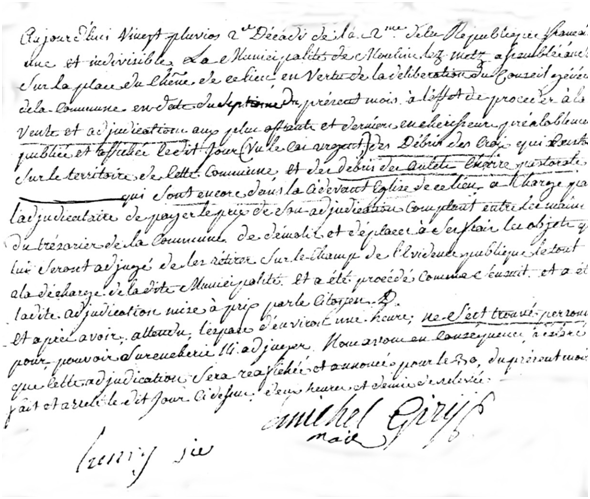 Aujourd'hui Vingt pluvios 2me Décadi de la 2me de la Republique francai
une et indivisible. La Municipalité de Moulin lez metz assemblée
Sur la place du Chêne de ce lieu en Vertu de la deliberation du Conseil généra
de la Commune en date du Septieme du présent mois, à l'effet de proceder à la
Vente et adjudication aux plus offrants et dernier encherisseur préalablement
publiée et affichée ledit Jour (Vu le cas urgent) des Débris des Croix qui
Sur le territoire de Cette Commune, et des debris des autels Chaire pastorale
qui sont encore dans la Cidevant Eglise de ce lieu a Charge pa
l'adjudicataire de payer le prix de Son adjudication Comptant entre les mains
du trésorier de la Commune de démolir et déplacer à Ses frais les objets qu
lui Seront adjugé de les retirer Sur le Champ de l'Evidence publique le tout
a la décharge de la dite Municipalité, et a été procédé Comme s'ensuit et a é
ladite adjudication mise à prix par le Citoyen
Et après avoir attendu l'espace d'environ une heure, ne s'est trouvé personn
pour pouvoir Surencherir et adjuger. Nous avons en Consequence
que cette adjudication Sera réaffichée et annoncée pour le 30 du présent mois
fait et arrêté le dit Jour Cidessus, d'une heure et demie de relevée.
michel
maire